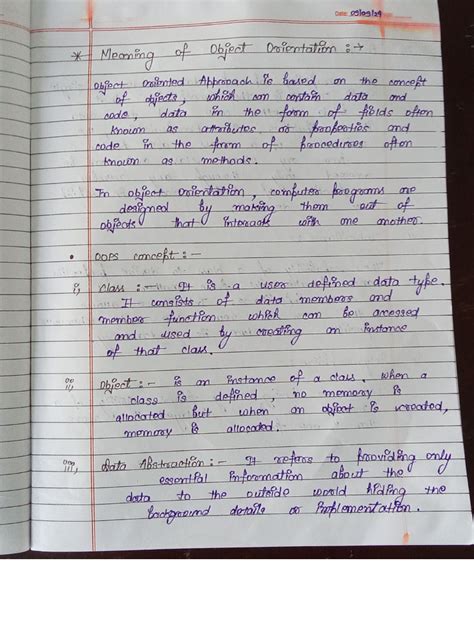 Date: 09/09/24
* Meaning of Object Orientation :→
Object Oriented Approach is based on the concept
of objects, which can contain data and
code, data in the form of fields often
known as attributes or properties and
code in the form of procedures often
known as methods.
In object orientation, computer programs are
designed by making them out of
objects that interacts with one another.
• OOPS concept :-
i, Class :- It is a user defined data type.
It consists of data members and
member function which can be accessed
and used by creating an instance
of that class.
ii, Object :- is an instance of a class. when a
class is defined, no memory is
allocated but when an object is created,
memory is allocated.
iii, Data Abstraction :- It refers to providing only
essential information about the
data to the outside world hiding the
background details or implementation.